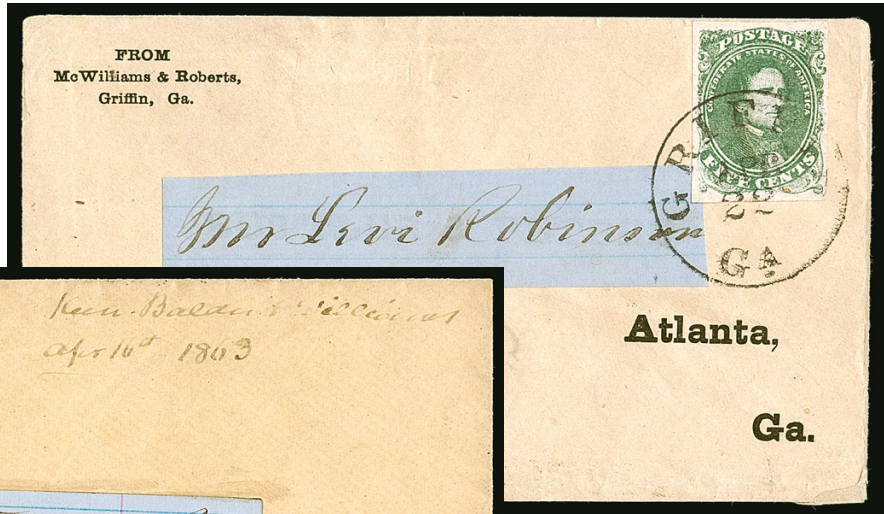 FROM
McWilliams & Roberts,
Griffin, Ga.
POSTAGE
CONFEDERATE STATES OF AMERICA
FIVE CENTS
GRIFFIN
22
GA
Mr Levi Robinson
Atlanta,
Ga.
Williams
Apr 16th 1863